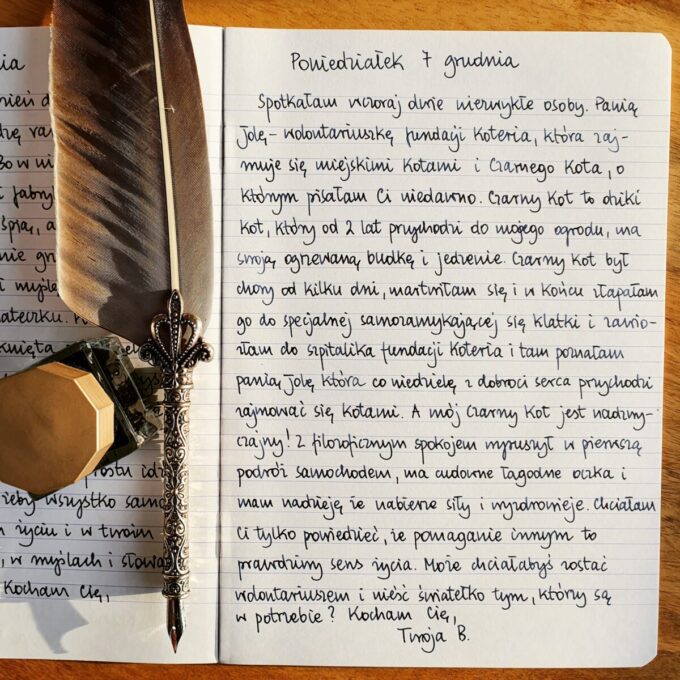 ia
nień d
dzę ra
Bo w ni
i fabry
śpią, a
nie gr
i myśle
ateczku.
knięta
prostu idz
żeby wszystko samo
życiu i w twoim
, w myślach i słowa
Kocham Cię,
Poniedziałek 7 grudnia
Spotkałam wczoraj dwie niezwykłe osoby. Panią
Jolę – wolontariuszkę fundacji Koteria, która zaj-
muje się miejskimi kotami i Czarnego Kota, o
którym pisałam Ci niedawno. Czarny Kot to dziki
kot, który od 2 lat przychodzi do mojego ogrodu, ma
swoją ogrzewaną budkę i jedzenie. Czarny Kot był
chory od kilku dni, martwiłam się i w końcu złapałam
go do specjalnej samozamykającej się klatki i zawio-
złam do szpitalika fundacji Koteria i tam poznałam
panią Jolę, która co niedzielę z dobroci serca przychodzi
zajmować się kotami. A mój Czarny Kot jest nadzwy-
czajny! Z filozoficznym spokojem wyruszył w pierwszą
podróż samochodem, ma cudowne łagodne oczka i
mam nadzieję że nabierze siły i wyzdrowieje. Chciałam
Ci tylko powiedzieć, że pomaganie innym to
prawdziwy sens życia. Może chciałabyś zostać
wolontariuszem i nieść światełko tym, którzy są
w potrzebie? Kocham Cię,
Twoja B.